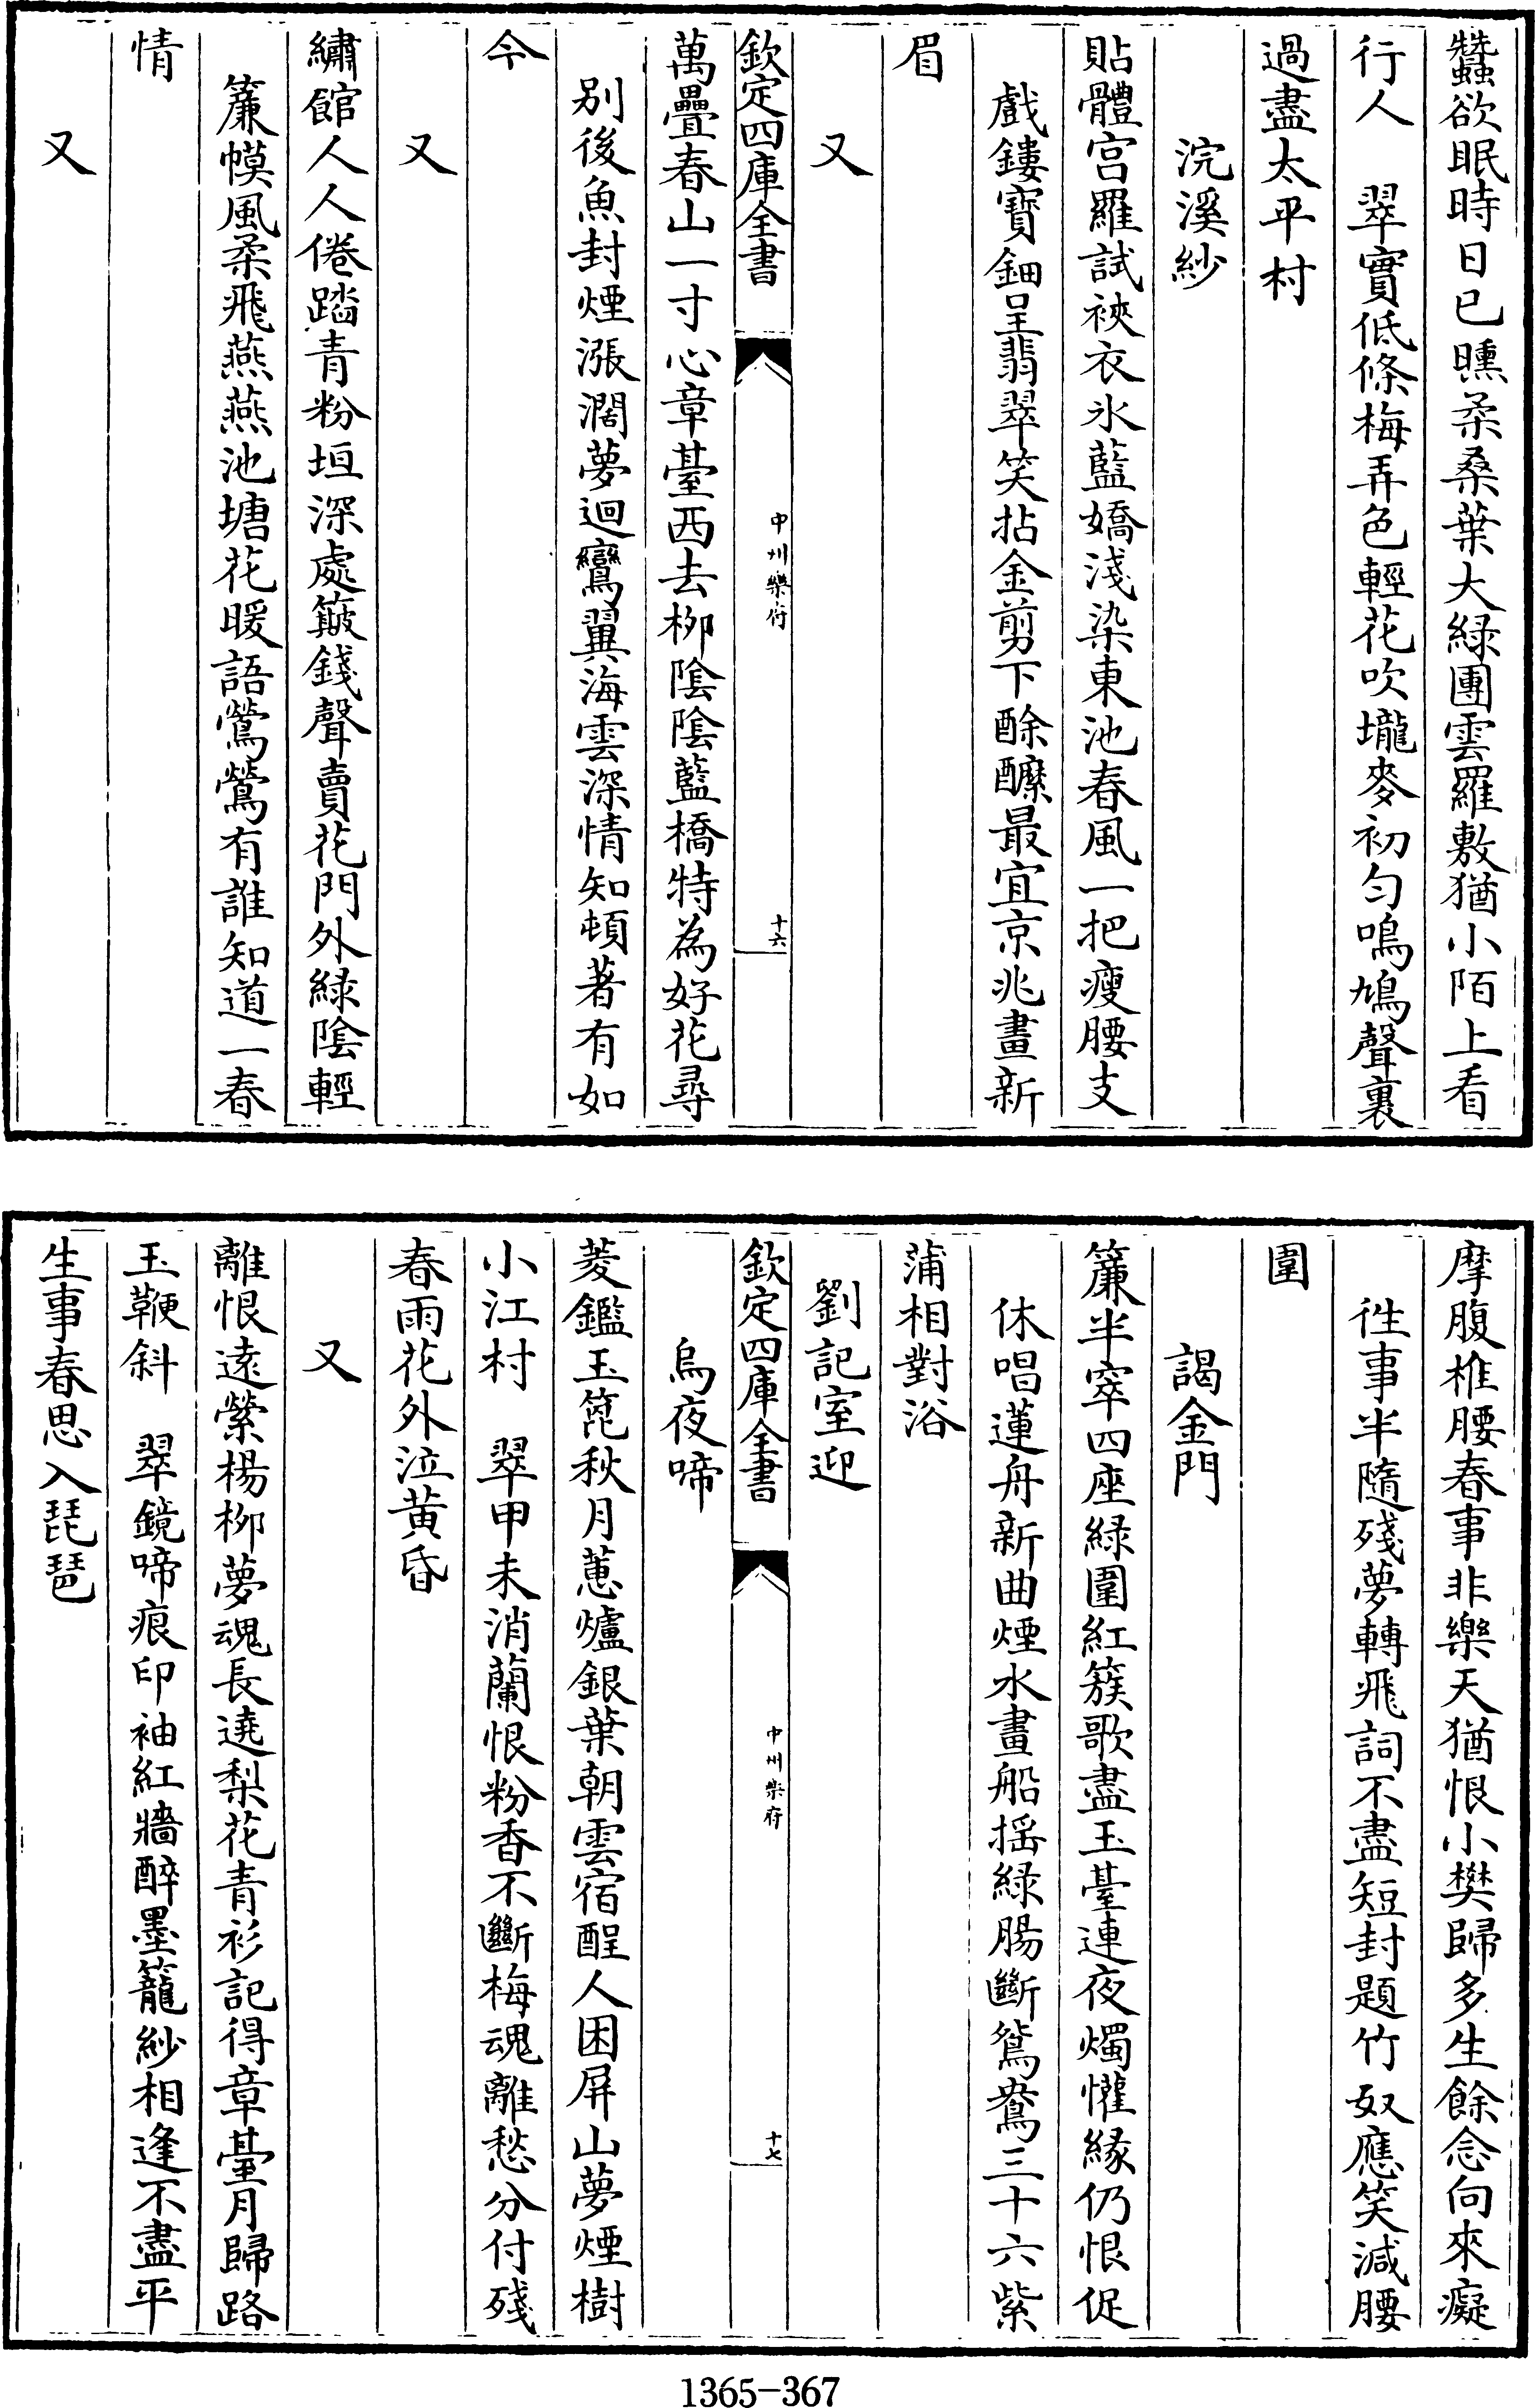 蠶欲眠時日已曛柔桑葉大緑團雲羅敷猶小陌上看
行人　翠實低條梅弄色輕花吹壠麥初匀鳴鳩聲裏
過盡太平村
浣溪紗
貼體宫羅試裌衣氷藍嬌淺染東池春風一把瘦腰支
戲鏤寳鈿呈翡翠笑拈金剪下酴醾最宜京兆畫新
眉
又
欽定四庫全書
中州樂府
十六
萬疊春山一寸心章臺西去栁隂隂藍橋特為好花尋
别後魚封煙漲濶夢迴鸞翼海雲深情知頓著有如
今
又
繡館人人倦踏青粉垣深處簸錢聲賣花門外緑隂輕
簾幙風柔飛燕燕池塘花暖語鶯鶯有誰知道一春
情
又
摩腹椎腰春事非樂天猶恨小樊歸多生餘念向來癡
徃事半隨殘夢轉飛詞不盡短封題竹奴應笑減腰
圍
謁金門
簾半窣四座緑圍紅簇歌盡玉臺連夜燭懽縁仍恨促
休唱蓮舟新曲煙水畫船揺緑腸斷鴛鴦三十六紫
蒲相對浴
劉記室迎
欽定四庫全書
中州樂府
十七
烏夜啼
菱鑑玉篦秋月蕙爐銀葉朝雲宿酲人困屏山夢煙樹
小江村　翠甲未消蘭恨粉香不斷梅魂離愁分付殘
春雨花外泣黄昏
又
離恨逺縈楊栁夢魂長遶梨花青衫記得章臺月歸路
玉鞭斜　翠鏡啼痕印袖紅牆醉墨籠紗相逢不盡平
生事春思入琵琶
1365-367